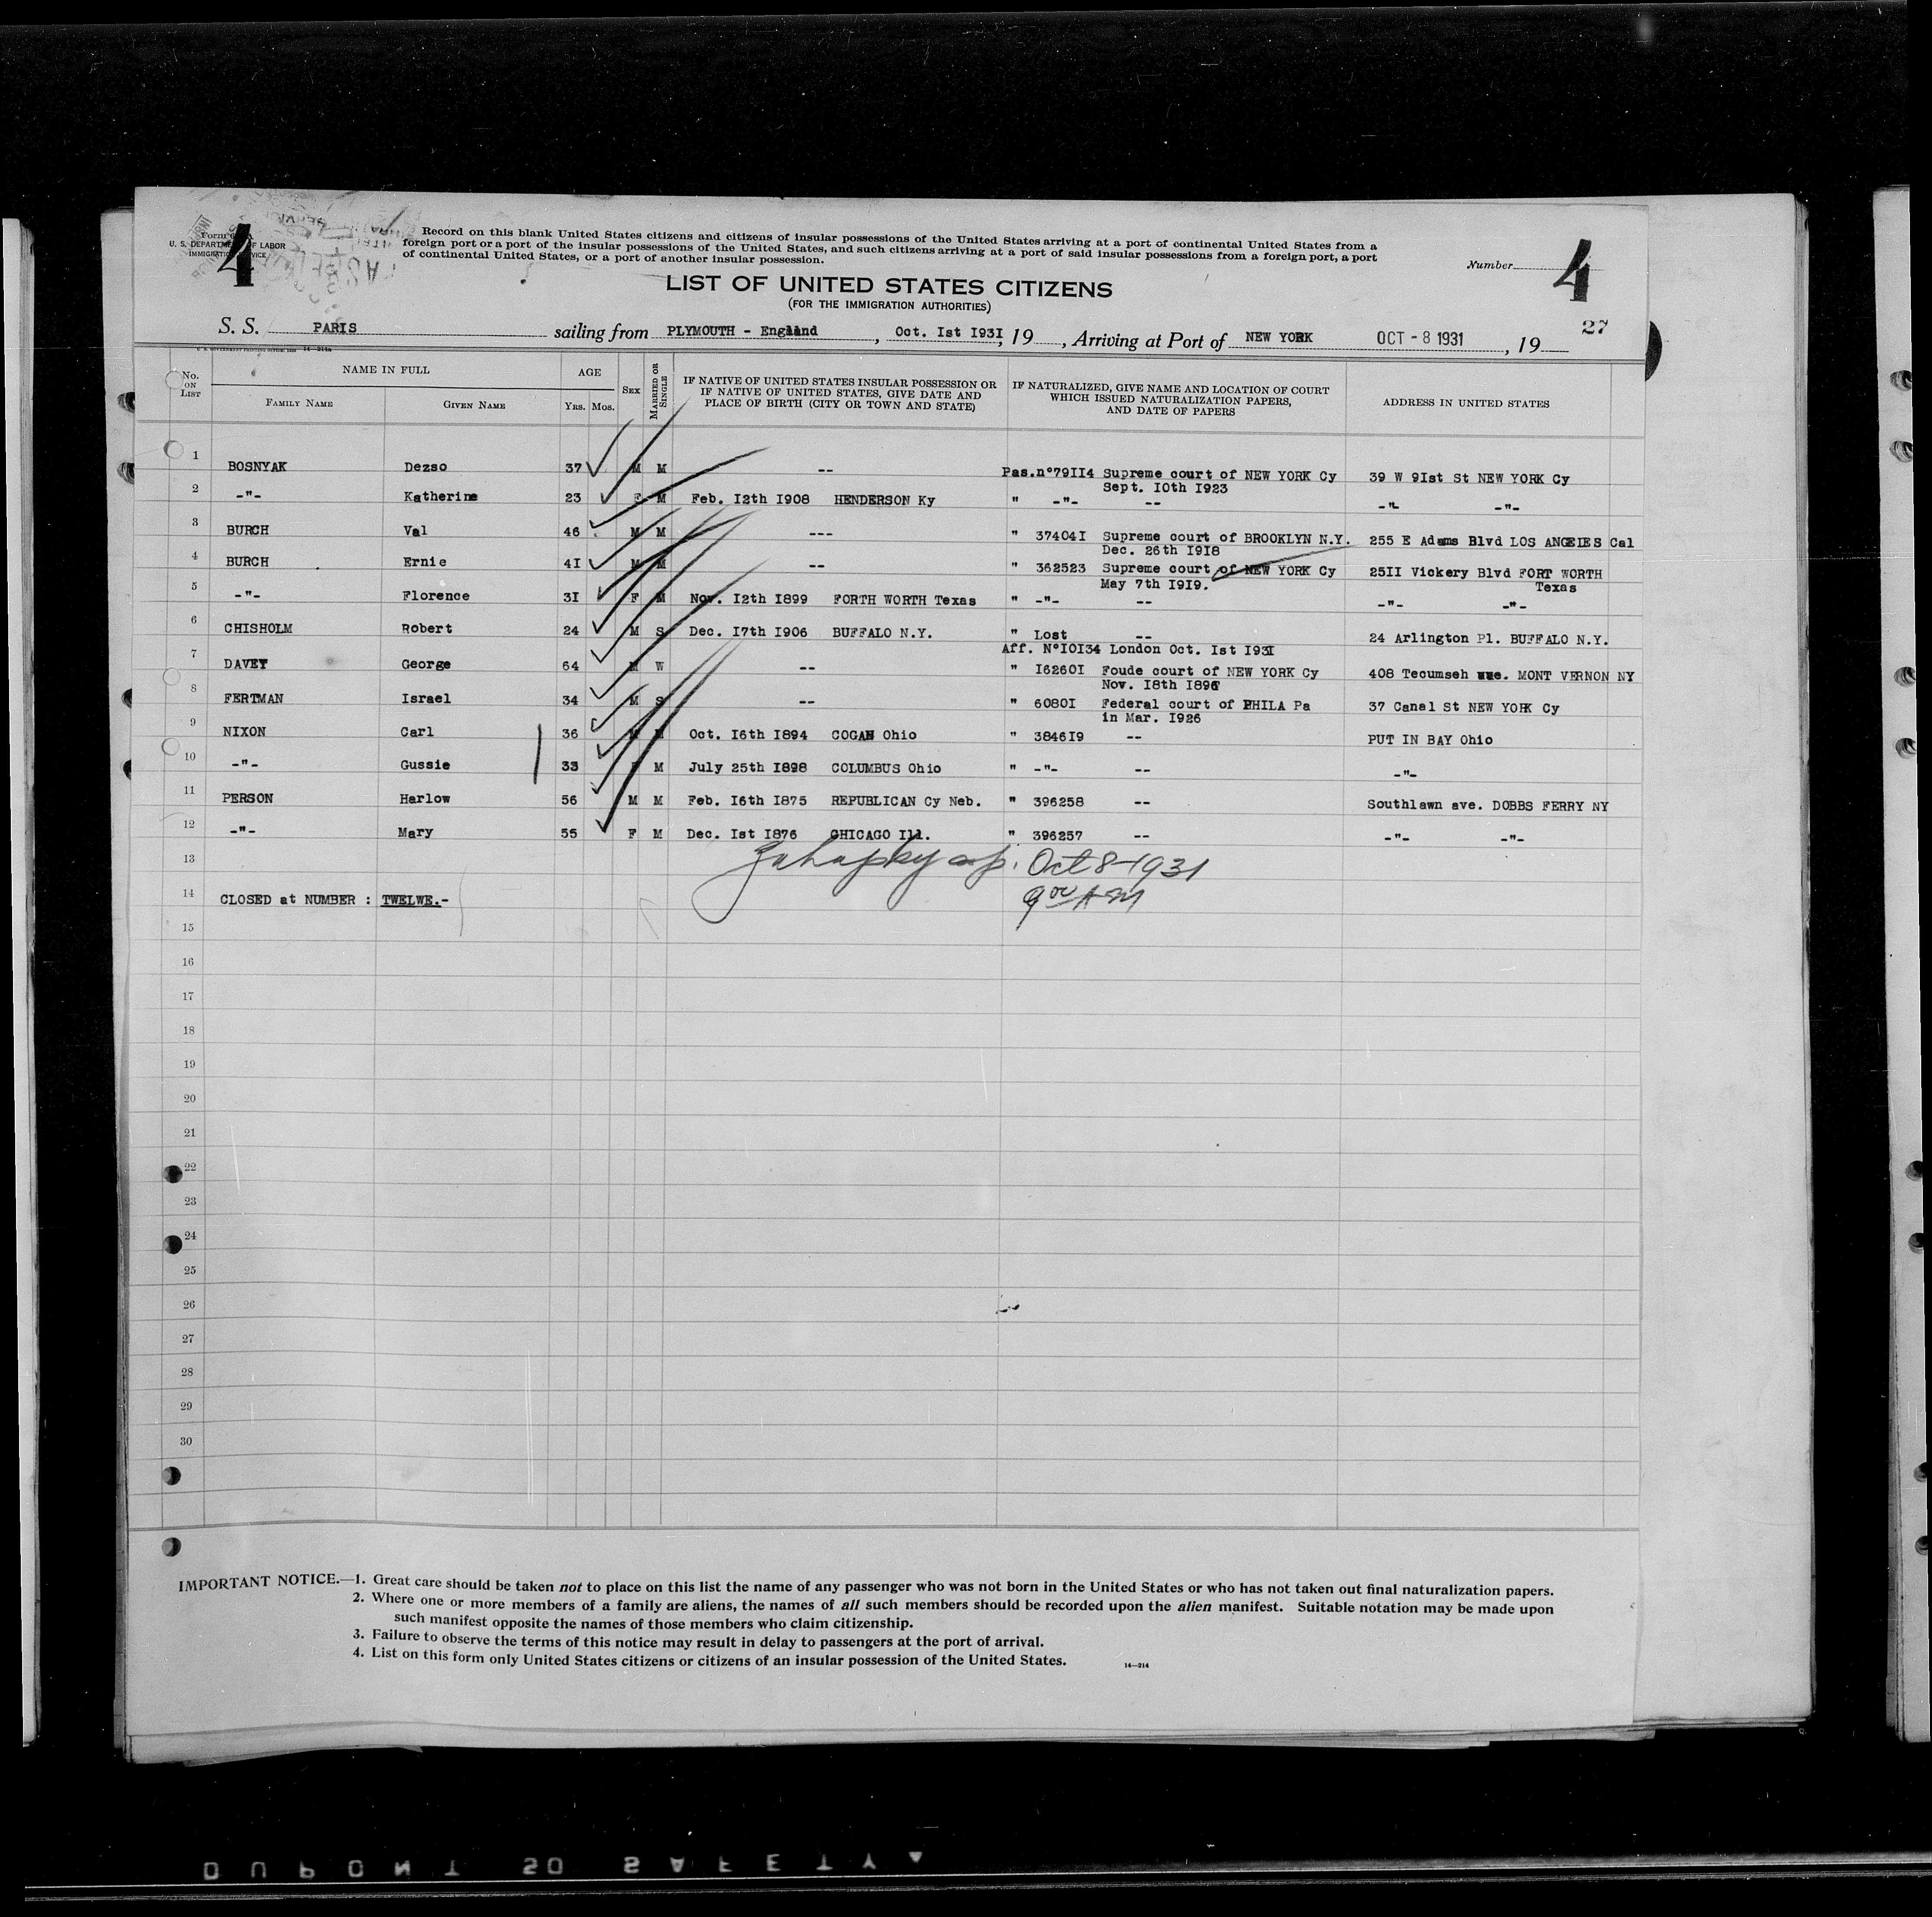 4
U. S. DEPARTMENT OF LABOR
Record on this blank United States citizens and citizens of insular possessions of the United States arriving at a port of continental United States from a
foreign port or a port of the insular possessions of the United States, and such citizens arriving at a port of said insular possessions from a foreign port, a port
of continental United States, or a port of another insular possession.
Number 4
LIST OF UNITED STATES CITIZENS
(FOR THE IMMIGRATION AUTHORITIES)
27
S. S. PARIS sailing from PLYMOUTH - England , Oct. Ist I93I, 19 , Arriving at Port of NEW YORK OCT - 8 1931 , 19
No. ON LIST NAME IN FULL FAMILY NAME GIVEN NAME AGE YRS. MOS. SEX MARRIED OR SINGLE IF NATIVE OF UNITED STATES INSULAR POSSESSION OR IF NATIVE OF UNITED STATES, GIVE DATE AND PLACE OF BIRTH (CITY OR TOWN AND STATE) IF NATURALIZED, GIVE NAME AND LOCATION OF COURT WHICH ISSUED NATURALIZATION PAPERS, AND DATE OF PAPERS ADDRESS IN UNITED STATES
1 BOSNYAK Dezso 37 M M -- Pas.n°79II4 Supreme court of NEW YORK Cy 39 W 9Ist St NEW YORK Cy
Sept. I0th I923
2 -"- Katherine 23 F M Feb. I2th I908 HENDERSON Ky " -"- -- -"- -"-
3 BURCH Val 46 M M --- " 37404I Supreme court of BROOKLYN N.Y. 255 E Adams Blvd LOS ANGEIES Cal
Dec. 26th I9I8
4 BURCH Ernie 4I M M -- " 362523 Supreme court of NEW YORK Cy 25II Vickery Blvd FORT WORTH
May 7th I9I9. Texas
5 -"- Florence 3I F M Nov. I2th I899 FORTH WORTH Texas " -"- -- -"- -"-
6 CHISHOLM Robert 24 M S Dec. I7th I906 BUFFALO N.Y. " Lost -- 24 Arlington Pl. BUFFALO N.Y.
Aff. N°I0I34 London Oct. Ist I93I
7 DAVEY George 64 M W -- " I6260I Foude court of NEW YORK Cy 408 Tecumseh ave. MONT VERNON NY
Nov. I8th
8 FERTMAN Israel 34 M S -- " 6080I Federal court of PHILA Pa 37 Canal St NEW YORK Cy
in Mar. I926
9 NIXON Carl 36 M M Oct. I6th I894 COGAN Ohio " 3846I9 -- PUT IN BAY Ohio
10 -"- Gussie 33 F M July 25th I898 COLUMBUS Ohio " -"- -- -"-
11 PERSON Harlow 56 M M Feb. I6th I875 REPUBLICAN Cy Neb. " 396258 -- Southlawn ave. DOBBS FERRY NY
12 -"- Mary 55 F M Dec. Ist I876 CHICAGO Ill. " 396257 -- -"- -"-
13 Oct 8-1931
14 CLOSED at NUMBER : TWELWE.- 9 00 AM
15
16
17
18
19
20
21
22
23
24
25
26
27
28
29
30
IMPORTANT NOTICE.—1. Great care should be taken not to place on this list the name of any passenger who was not born in the United States or who has not taken out final naturalization papers.
2. Where one or more members of a family are aliens, the names of all such members should be recorded upon the alien manifest. Suitable notation may be made upon
such manifest opposite the names of those members who claim citizenship.
3. Failure to observe the terms of this notice may result in delay to passengers at the port of arrival.
4. List on this form only United States citizens or citizens of an insular possession of the United States.
14—214
DUPONT SO SAFETY